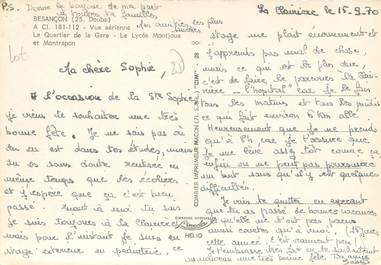 P.S. Donne le bonjour de ma part
à toute la famille.
BESANÇON (25. Doubs)
A CI. 181-112 - Vue aérienne
Mes amitiés les plus
sincères
Le Quartier de la Gare - Le Lycée Montjoux
et Montrapon
lot
Ma chère Sophie,
A l'occasion de la Ste Sophie
je viens te souhaiter une très
bonne fête. Je ne sais pas où
tu en est dans tes études, mais
tu as sans doute rentrée en
même temps que les écoliers
et j'espère que ça s'est bien
passé. Quant à moi tu vois
je suis toujours à la Clairière
mais pour l'instant je suis en
stage extérieur en pédiatrie, ce
COMBIER IMPRIMEUR MACON (71. S.-&-L.) "CIM"
Cim
HELIO
La Clairière le 15.9.70
stage me plaît énormément et
j'apprends pas mal de chose,
mais ce qui est le plus dur
c'est de faire le parcours "la Clai-
rière - l'hôpital" car je le fais
tous les matins et tous les midis
ce qui fait environ 6 km aller
Heureusement que je ne prends
qu'à 8H car je t'assure que
je me lève assez tôt comme ça
enfin on ne peut pas poursuivre
un but sans qu'il y est quelques
difficultés.
Je vais te quitter en espérant
que tu as passé de bonnes vacances
et qu'elle ne t'ont pas parues
aussi courtes qu'à moi, (15 jours
cette année, c'est vraiment peu)
Je t'embrasse bien fort en te souhaitant
à nouveau une très bonne fête.